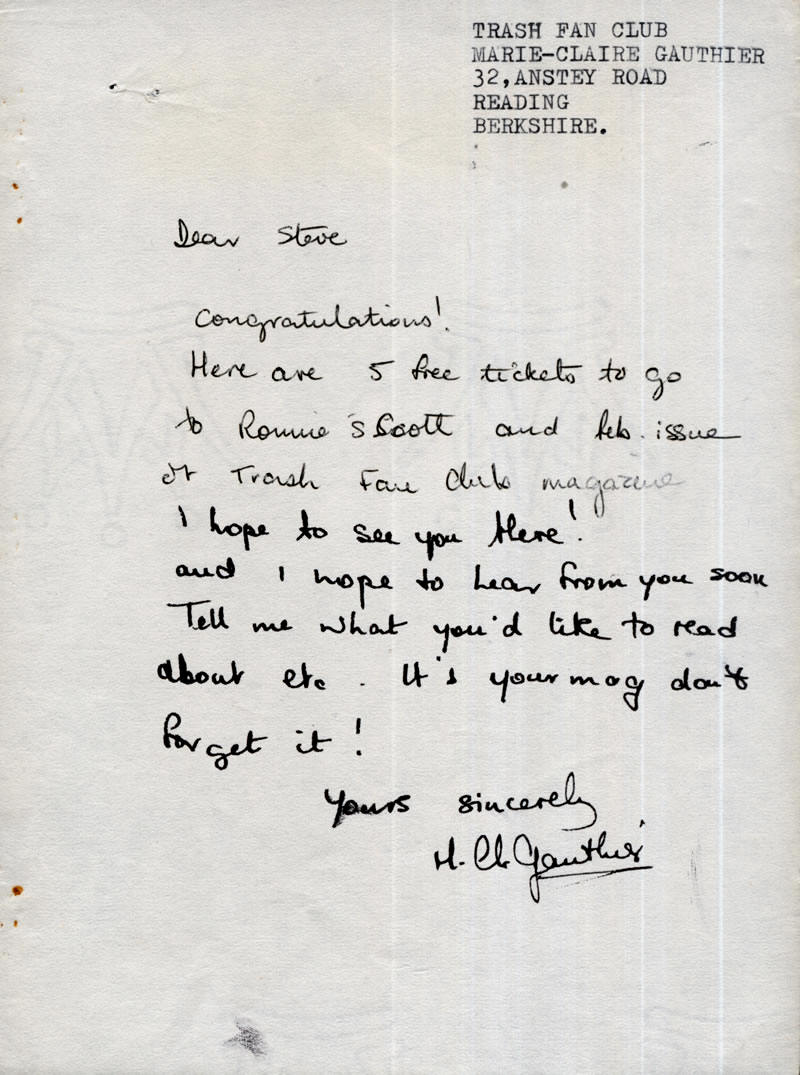 TRASH FAN CLUB
MARIE-CLAIRE GAUTHIER
32,ANSTEY ROAD
READING
BERKSHIRE.
Dear Steve
Congratulations!
Here are 5 free tickets to go
to Ronnie's Scott and feb. issue
of Trash Fan Club magazine
I hope to see you there!
and I hope to hear from you soon
Tell me what you'd like to read
about etc. It's your mag don't
forget it!
Yours sincerely
M. Cl. Gauthier